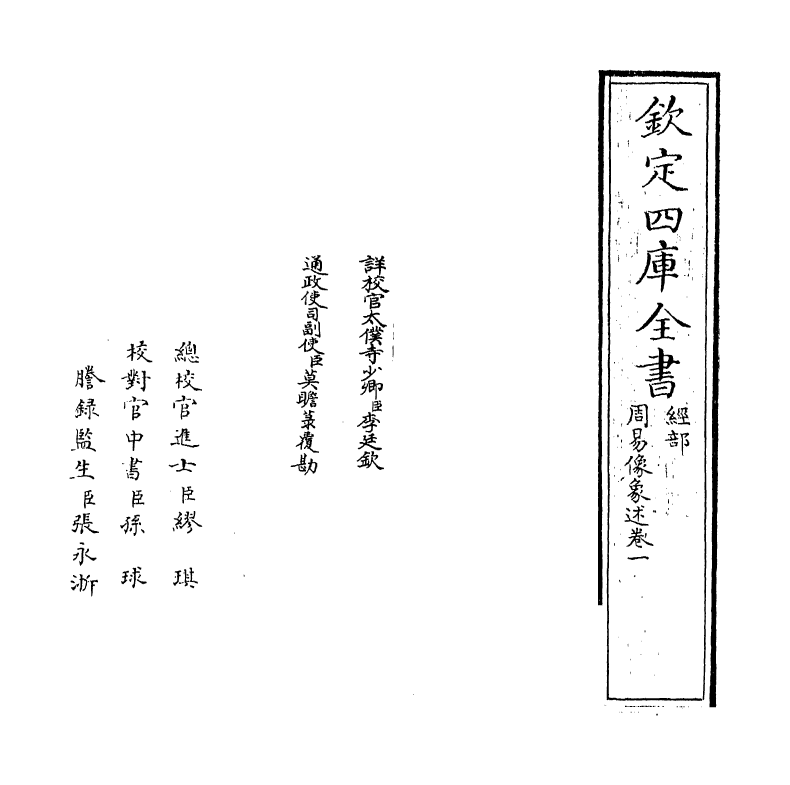 欽定四庫全書
經部
周易像象述卷一
詳校官太僕寺少卿臣李廷欽
通政使司副使臣莫瞻菉覆勘
總校官進士臣繆琪
校對官中書臣孫球
謄録監生臣張永淛